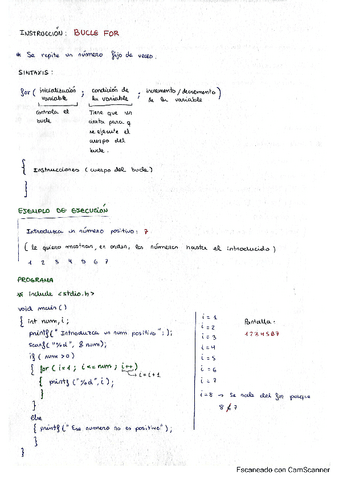 INSTRUCCIÓN: BUCLE FOR
* Se repite un número fijo de veces.
SINTAXIS:
for ( inicialización variable ; condición de la variable ; incremento/decremento de la variable )
controla el bucle
Tiene que ser cierta para q se ejecute el cuerpo del bucle.
{ Instrucciones (cuerpo del bucle)
}
EJEMPLO DE EJECUCIÓN
Introduzca un número positivo: 7
( le quiero mostrar, en orden, los números hasta el introducido )
1 2 3 4 5 6 7
PROGRAMA
# include <stdio.h>
void main ()
{ int num, i;
printf (" Introduzca un num positivo ");
scanf ("%d", & num);
if ( num > 0 )
{ for ( i=1 ; i <= num ; i++ )
→ i = i+1
{ printf ("%d", i);
}
}
else
{ printf (" Ese numero no es positivo");
}
}
i = 1
i = 2
i = 3
i = 4
i = 5
i = 6
i = 7
i = 8 → Se sale del for porque
8 ≮ 7
Pantalla:
1234567
Escaneado con CamScanner